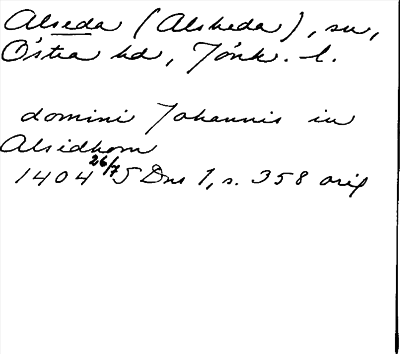 Alseda (Alsheda), sn,
Östra hd, Jönk. l.
domini Johannis in
Alsidhom
1404 26/7 S Dns 1, s. 358 orig